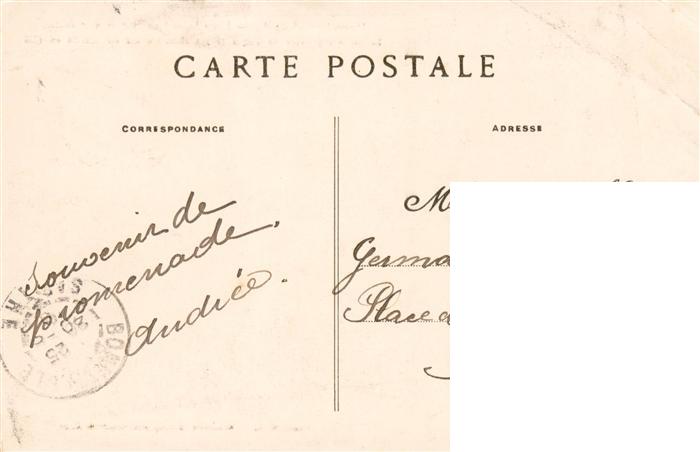 CARTE POSTALE
CORRESPONDANCE
ADRESSE
Souvenir de
promenade.
Andrée.
Germa
Place d